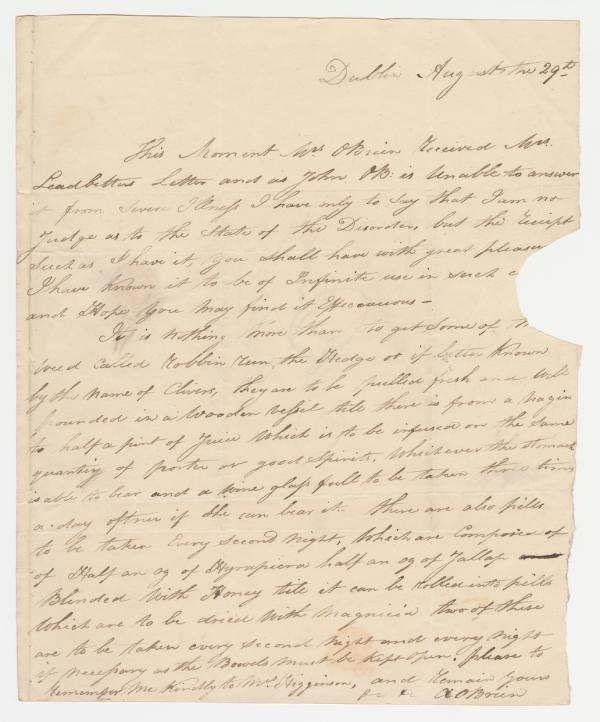 Dublin August the 29th
This Moment Mrs OBrien Received Mrs.
Leadbetters Letter and as John OB: is Unable to answer
it from Severe Illness I have only to Say that I am no
Judge as to the State of the Disorder, but the Receipt
Such as I have it, you Shall have with great pleasure
I have known it to be of Infinite use in such
and Hope you may find it Effecacious –
It is nothing more than to get Some of
weed Called Robbin Run the Hedge or if better known
by the name of Clivers, they are to be pulled fresh and well
pounded in a Wooden vessel till there is from a nagin
to half a pint of Juice which is to be infused on the Same
quantity of porter or good Spirits, Whichever the stomach
is able to bear and a wine glass full to be taken three times
a day oftner if She can bear it. there are also pills
to be taken Every Second night, Which are Composed of
of Half an oz of Hyrapicra half an oz of Jallap
Blended With Honey till it can be rolled into pills
Which are to be dried with Magnicia two of these
are to be taken every Second night and every night
if necessary as the Bowels must be kept open. please to
Remember Me Kindly to Mrs. Higginson, and Remain Yours
&c &c A OBrien